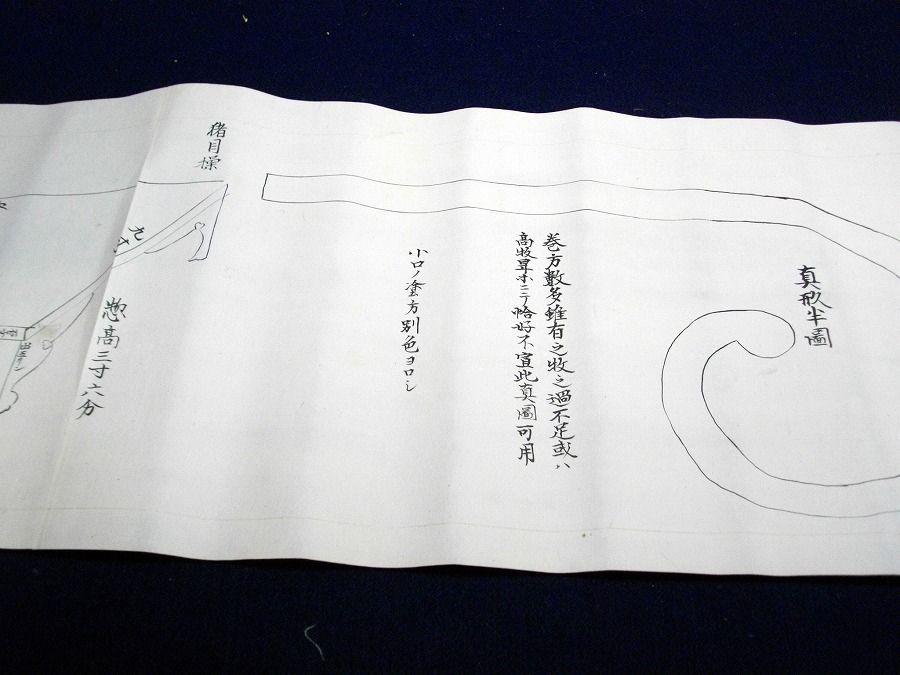 真形半圖
巻方數多雖有之牧之過不足或ハ
高牧昇ホニテ恰好不宜此真圖可用
小口ノ塗方別色ヨロシ
猪目操
九寸
惣高三寸六分